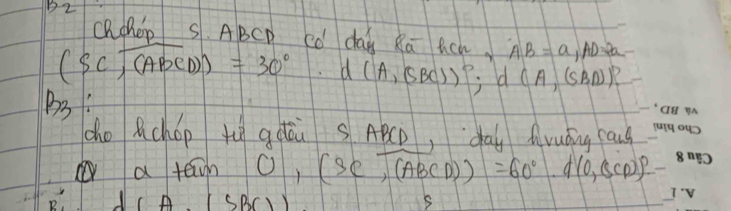 B2
Chchóp S.ABCD có đáy là hcn, AB = a, AD=2a
(SC, (ABCD)) = 30° . d(A, (SBC))?; d(A, (SBD))?
B3:
cho hchóp tứ giác đều S.ABCD, đáy hvuông cạnh
a tâm O, (SC, (ABCD)) = 60° . d(O, (SCD))?
d(A, (SBC))
S
và BD.
Cho hình
Câu 8
A. I